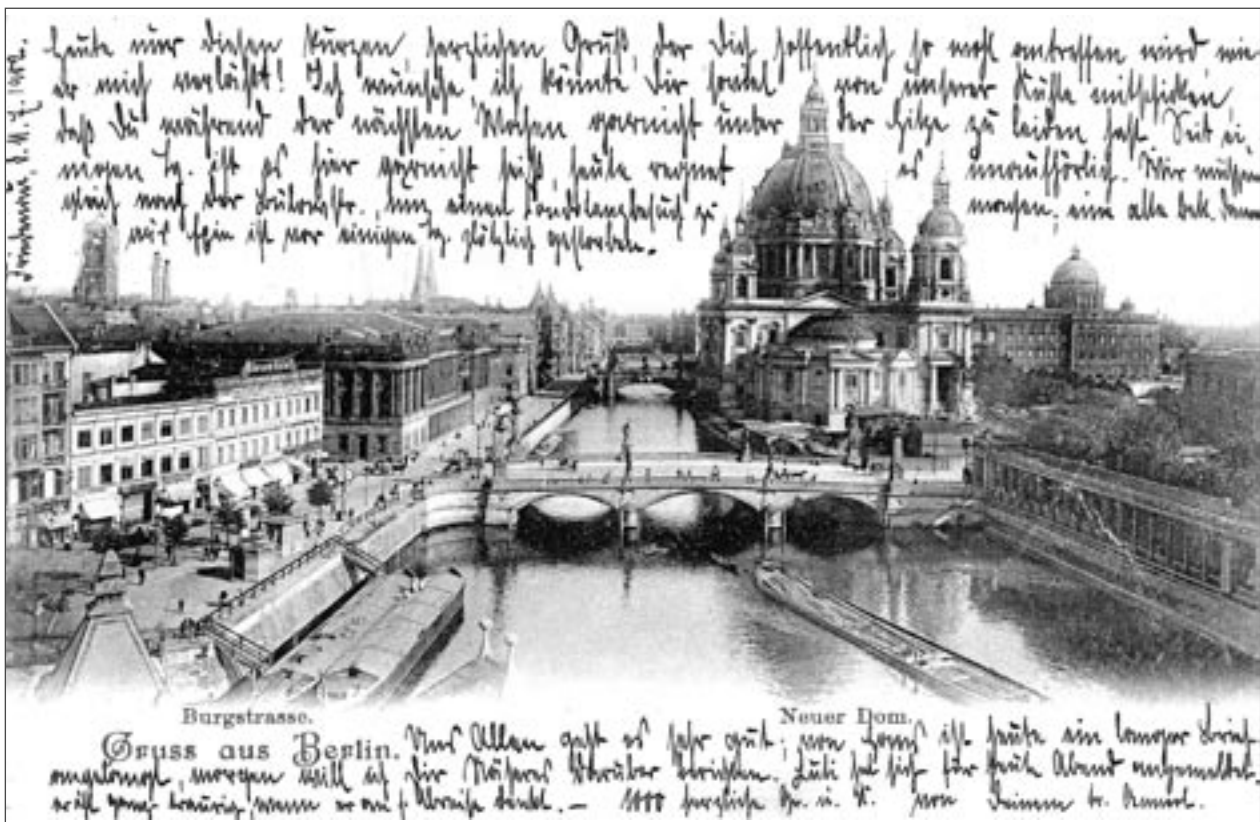 Heute nur diesen kurzen, herzlichen Gruß, der Dich hoffentlich so wohl antreffen wird, wie
er mich verläßt! Ich wünsche, ich könnte Dir soviel von unserer Kühle mitschicken,
daß Du während der nächsten Wochen garnicht unter der Hitze zu leiden hast. Seit ei-
nigen Tg. ist es hier garnicht heiß, heute regnet es unaufhörlich. Wir müssen
gleich nach der Bülowstr., um einen Kondolenzbesuch zu machen; eine alte bek. Dame
ist vor einigen Tg. plötzlich gestorben.
Burgstrasse.
Neuer Dom.
Gruss aus Berlin.
Uns Allen geht es sehr gut; von Hans ist heute ein langer Brief
angelangt, morgen will ich Dir Näheres darüber berichten. hat sich für heute Abend angemeldet,
er ist ganz traurig, wenn er an s. Abreise denkt. — 1000 herzliche Gr. u. K. von Deinem tr.